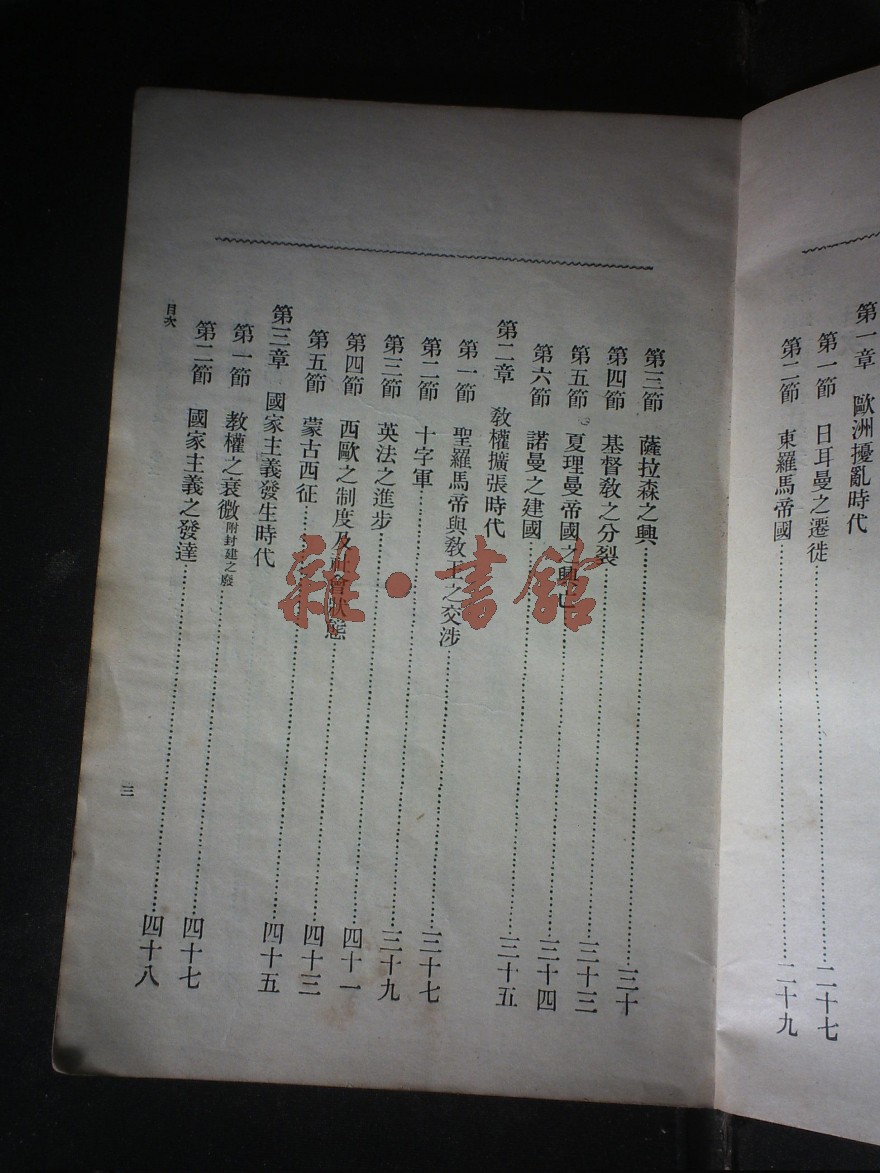 第一章 歐洲擾亂時代
第一節 日耳曼之遷徙……二十七
第二節 東羅馬帝國……二十九
第三節 薩拉森之興……三十
第四節 基督敎之分裂……三十三
第五節 夏理曼帝國之興亡……三十四
第六節 諾曼之建國……三十五
第二章 敎權擴張時代
第一節 聖羅馬帝與敎王之交涉……三十七
第二節 十字軍……三十九
第三節 英法之進步……四十一
第四節 西歐之制度及社會狀態……四十三
第五節 蒙古西征……四十五
第三章 國家主義發生時代
第一節 敎權之衰微附封建之廢……四十七
第二節 國家主義之發達……四十八
目次
三
雜·書館